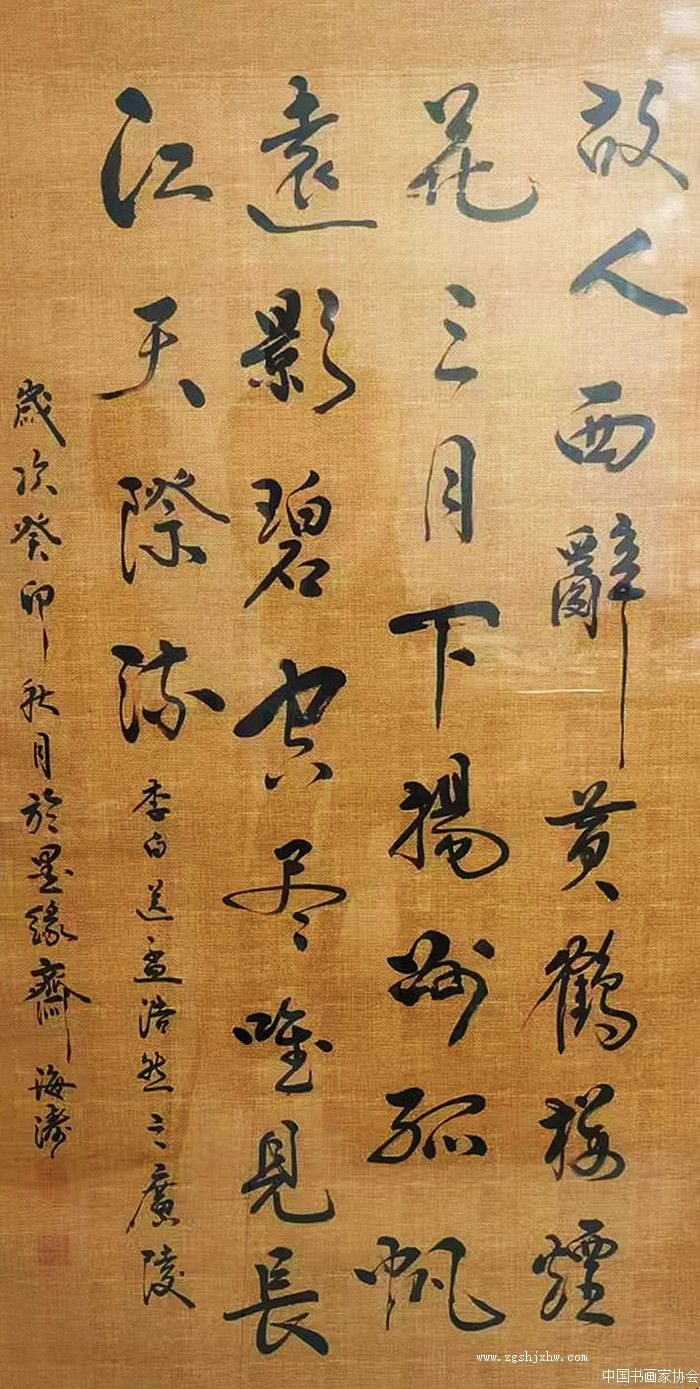 故人西辭黄鶴楼煙
花三月下揚州孤帆
遠影碧空尽唯見長
江天際流
李白送孟浩然之廣陵
歲次癸卯秋月於墨緣齋海濤
www.zgshjxhw.com
中国书画家协会